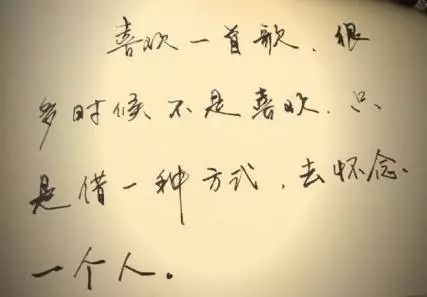 喜欢一首歌.很
多时候不是喜欢.只
是借一种方式.去怀念
一个人。